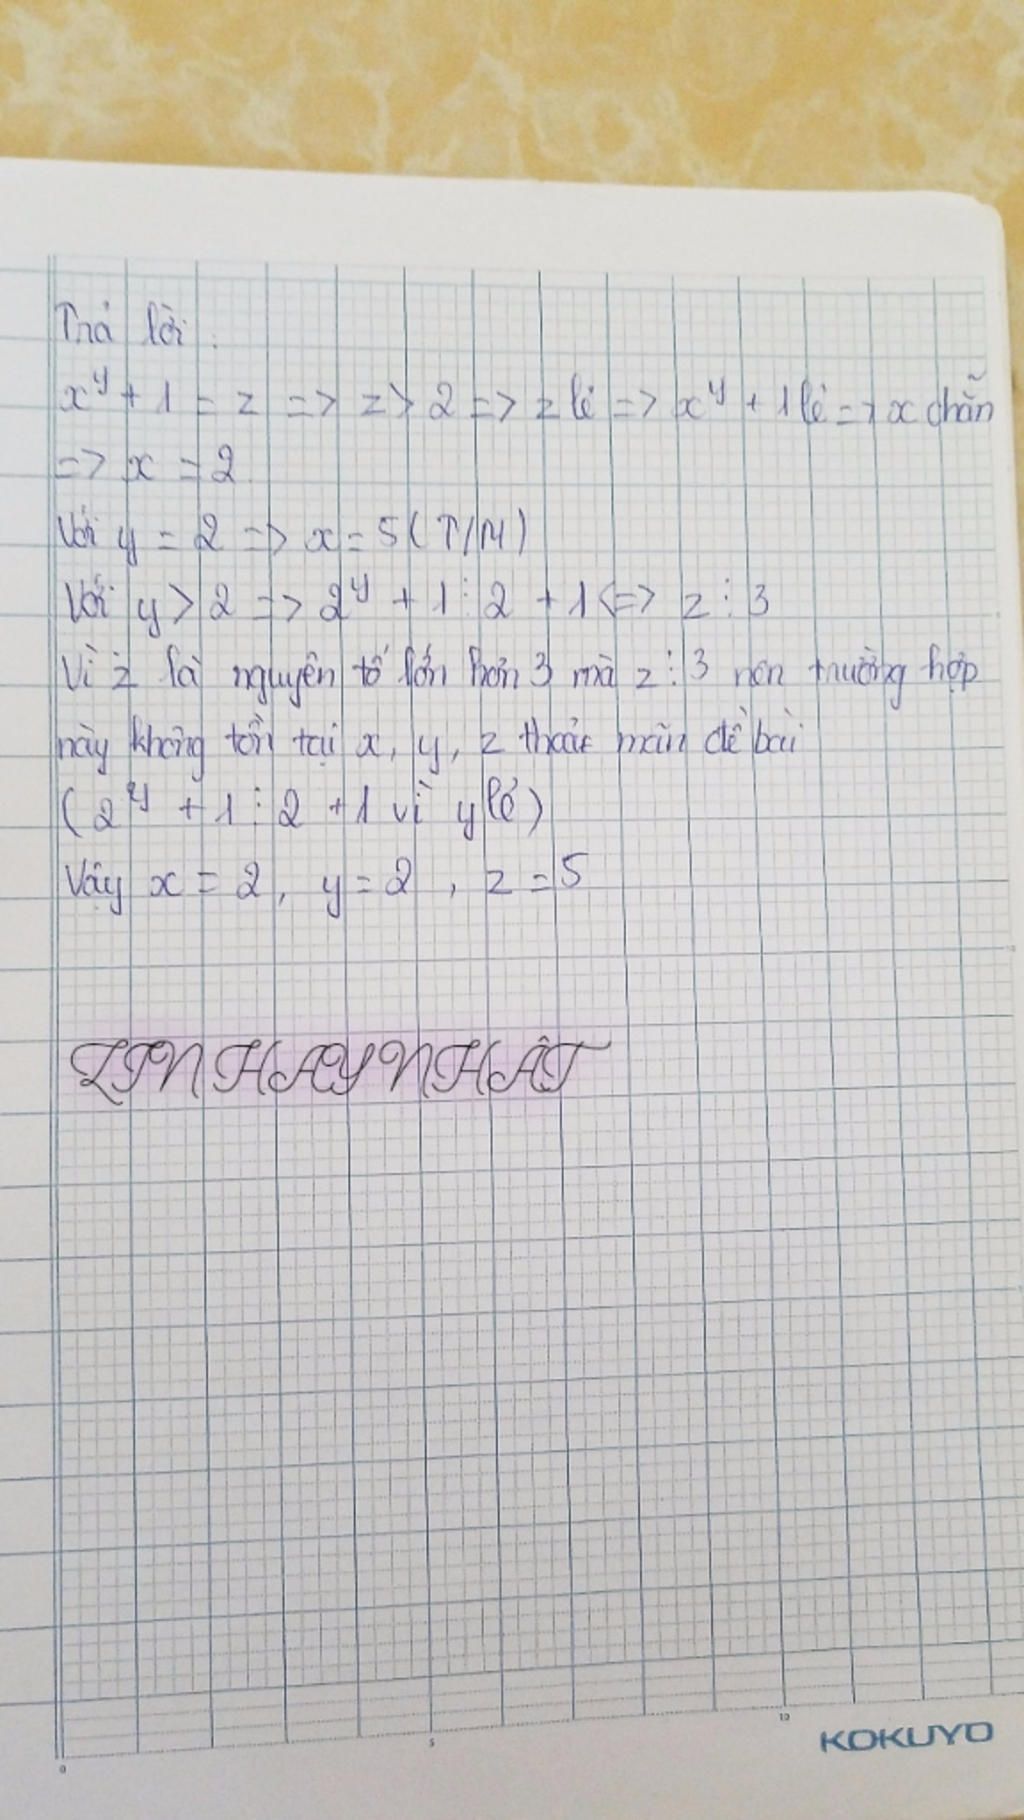 Trả lời:
x^y + 1 = z => z > 2 => z lẻ => x^y + 1 lẻ => x chẵn
=> x = 2
Với y = 2 => x = 5 (T/M)
Với y > 2 => 2^y + 1 ⋮ 2 + 1 <=> z ⋮ 3
Vì z là nguyên tố lớn hơn 3 mà z ⋮ 3 nên trường hợp
này không tồn tại x, y, z thoả mãn đề bài
(2^y + 1 ⋮ 2 + 1 vì y lẻ)
Vậy x = 2, y = 2, z = 5
XIN HAY NHẤT
5
10
0
KOKUYO